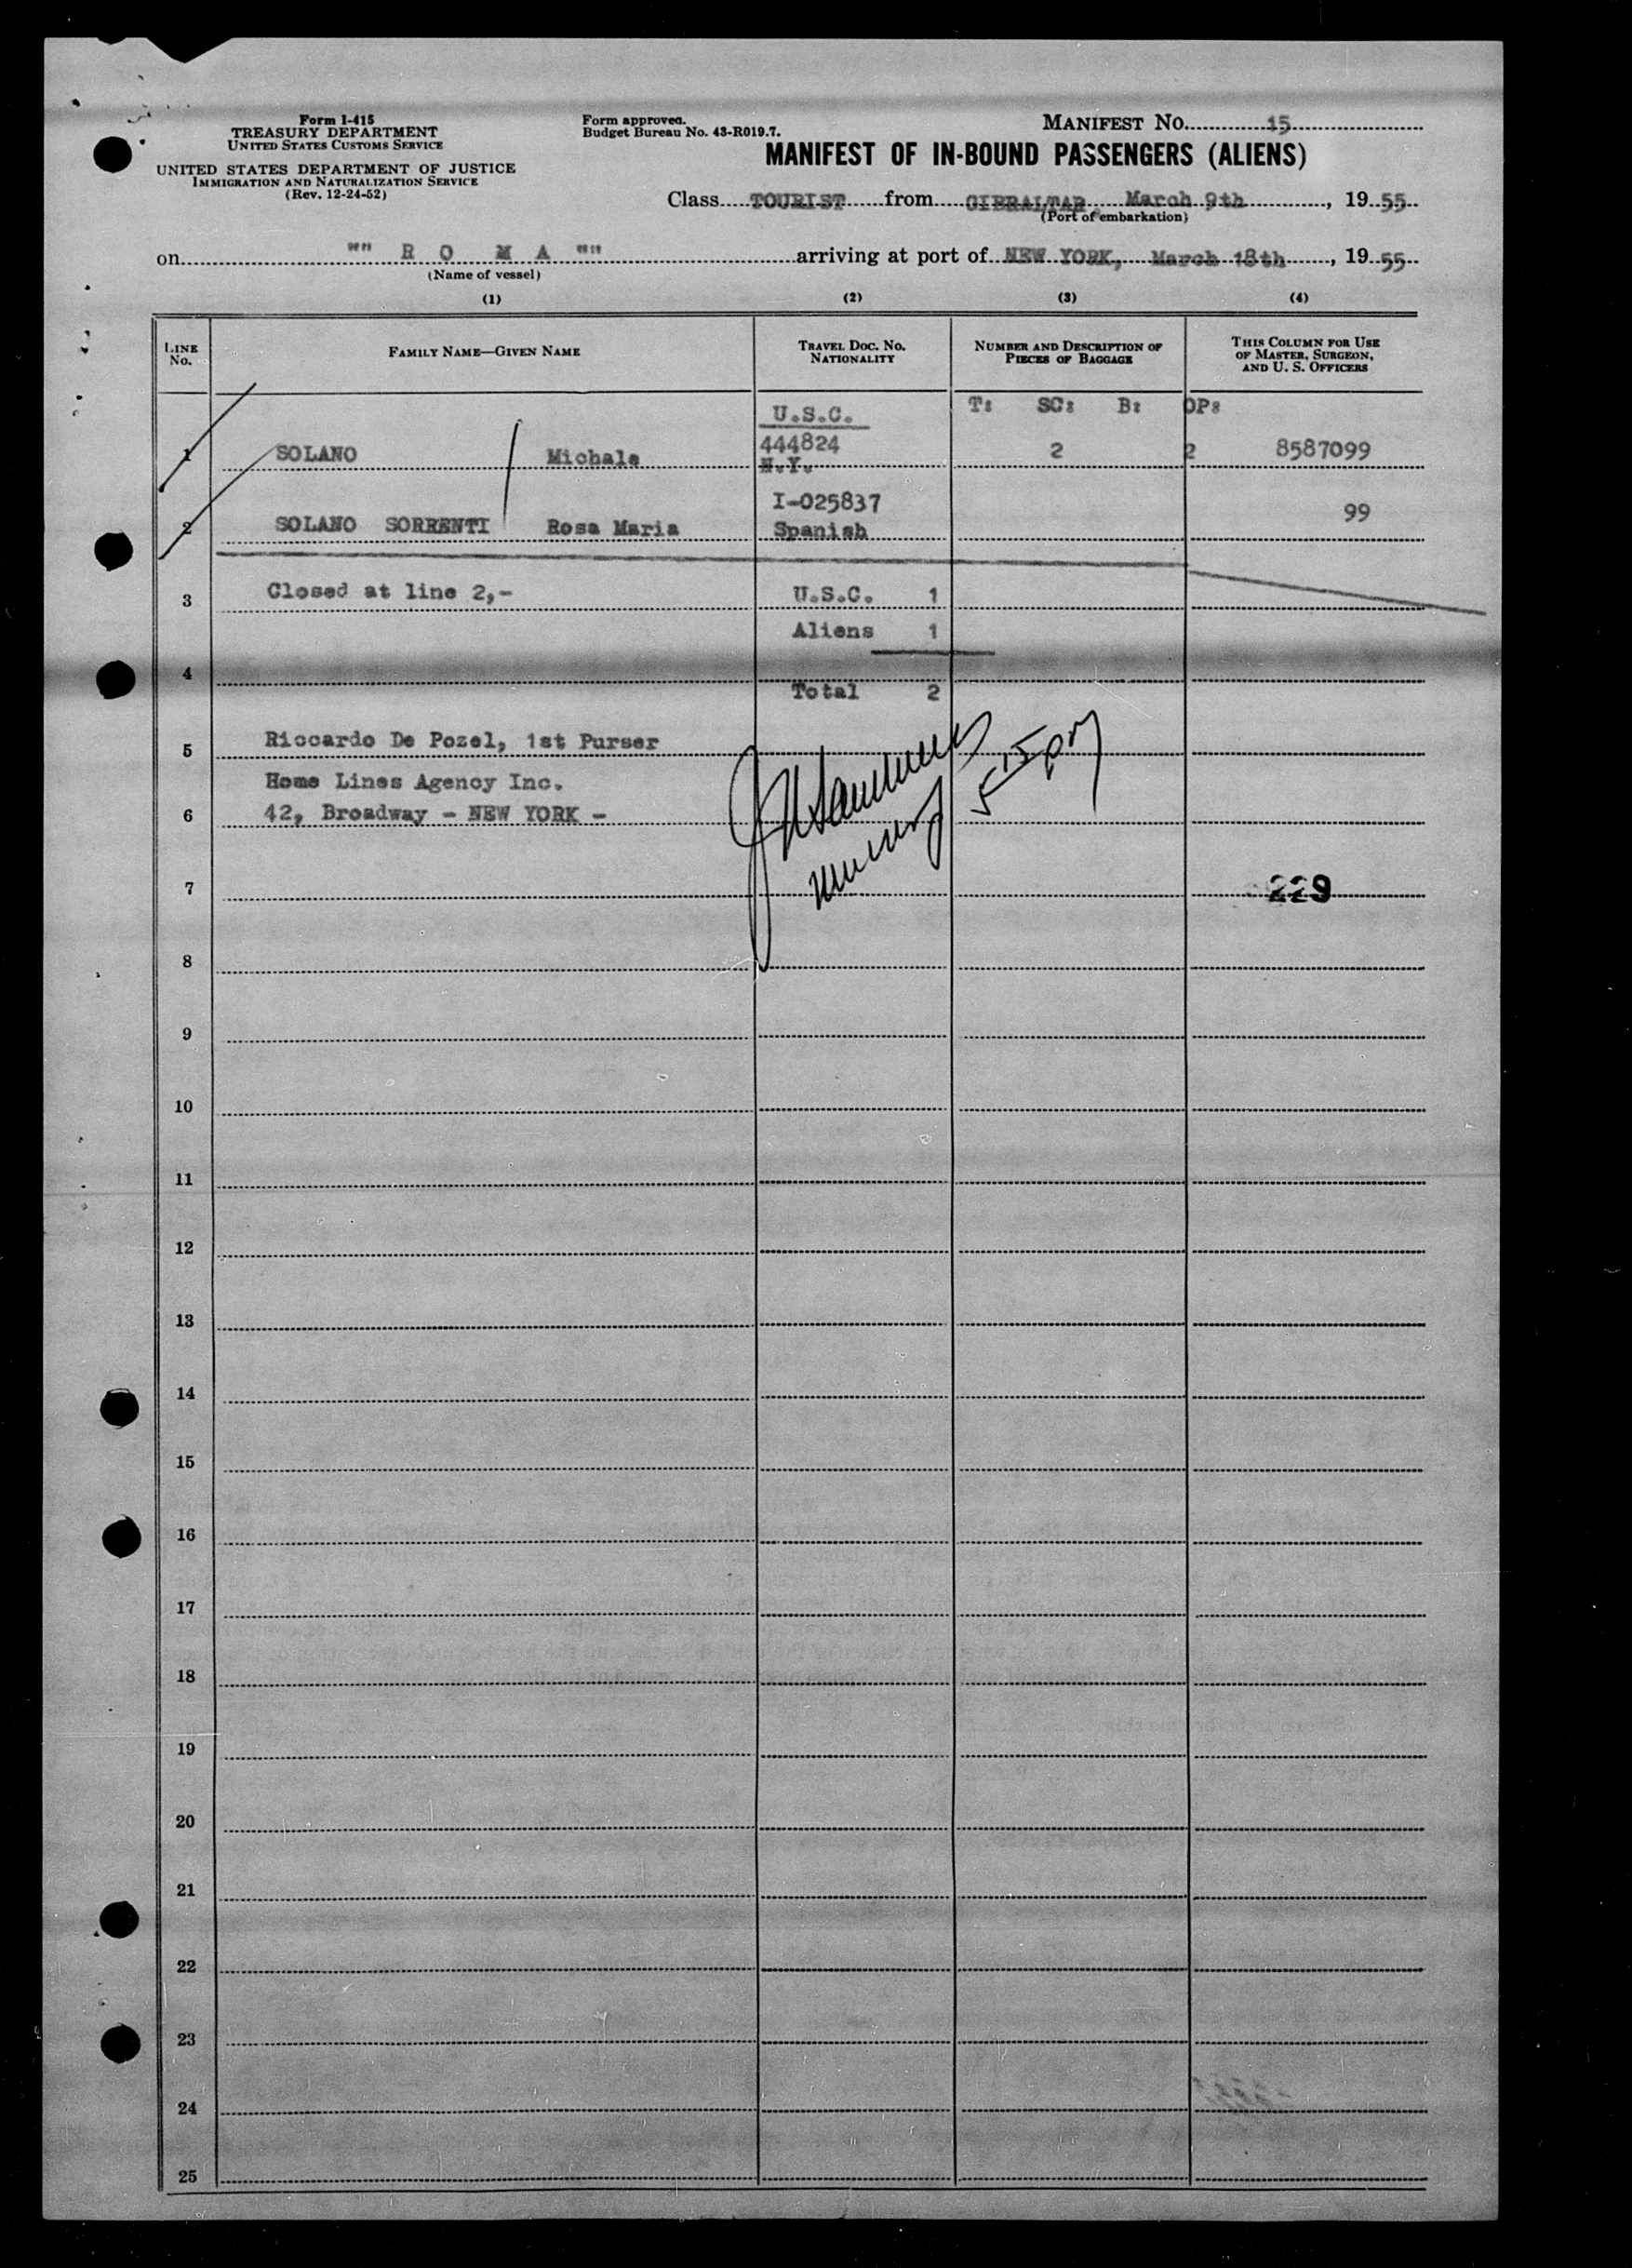 Form I-415
TREASURY DEPARTMENT
UNITED STATES CUSTOMS SERVICE
UNITED STATES DEPARTMENT OF JUSTICE
IMMIGRATION AND NATURALIZATION SERVICE
(Rev. 12-24-52)
Form approved.
Budget Bureau No. 43-R019.7.
MANIFEST NO. 15
MANIFEST OF IN-BOUND PASSENGERS (ALIENS)
Class TOURIST from GIBRALTAR, March 9th, 19 55
(Port of embarkation)
on "" R O M A "" arriving at port of NEW YORK, March 18th, 19 55
(Name of vessel)
(1) (2) (3) (4)
LINE No. FAMILY NAME—GIVEN NAME TRAVEL DOC. NO. NATIONALITY NUMBER AND DESCRIPTION OF PIECES OF BAGGAGE THIS COLUMN FOR USE OF MASTER, SURGEON, AND U. S. OFFICERS
U.S.C. T: SC: B: OP:
1 SOLANO Michale 444824 2 2 8587099
N.Y.
I-025837 99
2 SOLANO SORRENTI Rosa Maria Spanish
3 Closed at line 2,- U.S.C. 1
Aliens 1
4
Total 2
5 Riccardo De Pozel, 1st Purser
Home Lines Agency Inc.
6 42, Broadway - NEW YORK -
5 15 pm
7 229
8
9
10
11
12
13
14
15
16
17
18
19
20
21
22
23
24
25